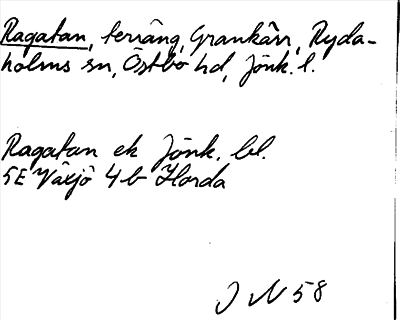 Ragatan, terräng, Grankärr, Ryda-
holms sn, Östbo hd, Jönk. l.
Ragatan ek Jönk. bl.
5E Växjö 4b Horda
J N 58